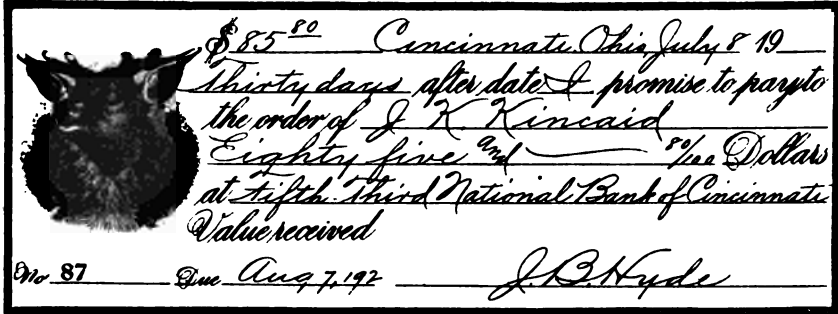 $ 85 80 Cincinnati, Ohio, July 8 19
Thirty days after date I promise to pay to
the order of J. K. Kincaid
Eighty five and 80/100 Dollars
at Fifth-Third National Bank of Cincinnati
Value received
No 87 Due Aug 7, 192 J. B. Hyde